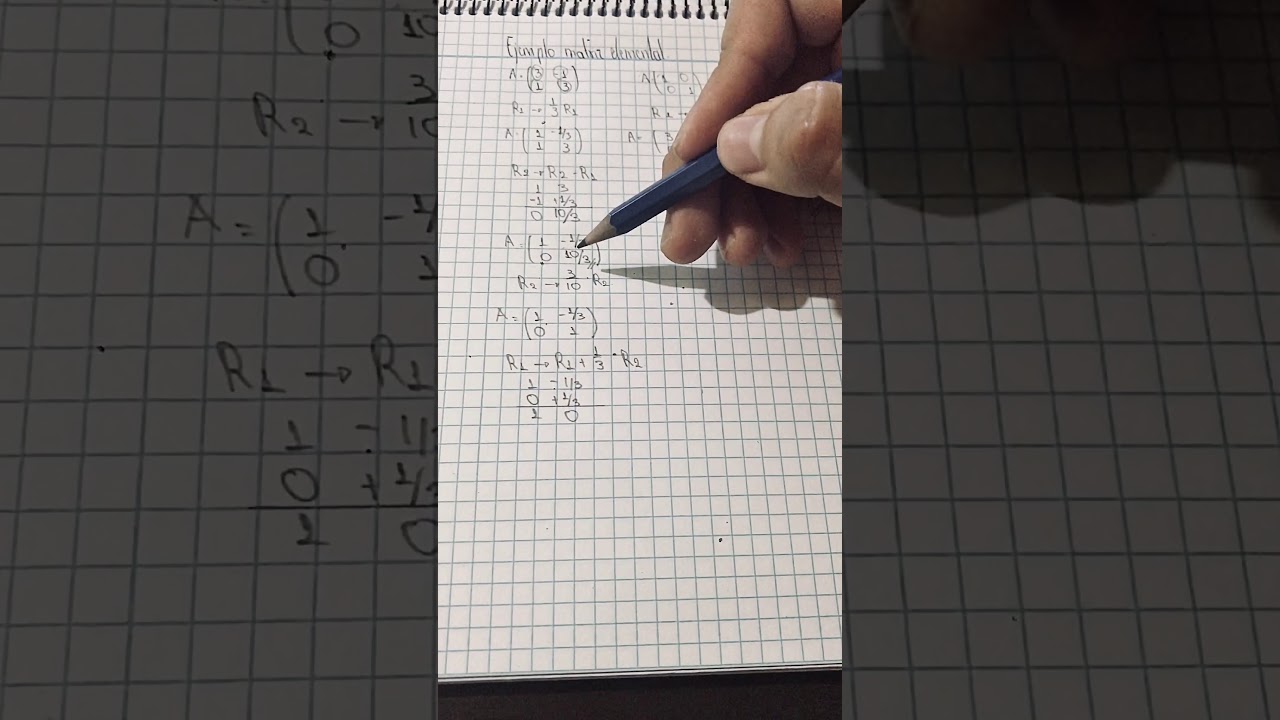 Ejemplo matriz elemental
A = (3 -1
1 3)
R1 → 1/3 R1
A = (1 -1/3
1 3)
R2 → R2 - R1
1 3
-1 +1/3
0 10/3
A = (1 -1/
0 10/3)
R2 → 3/10 · R2
A = (1 -1/3
0 1)
R1 → R1 + 1/3 · R2
1 -1/3
0 +1/3
1 0
A (1 0
0 1)
A = (3